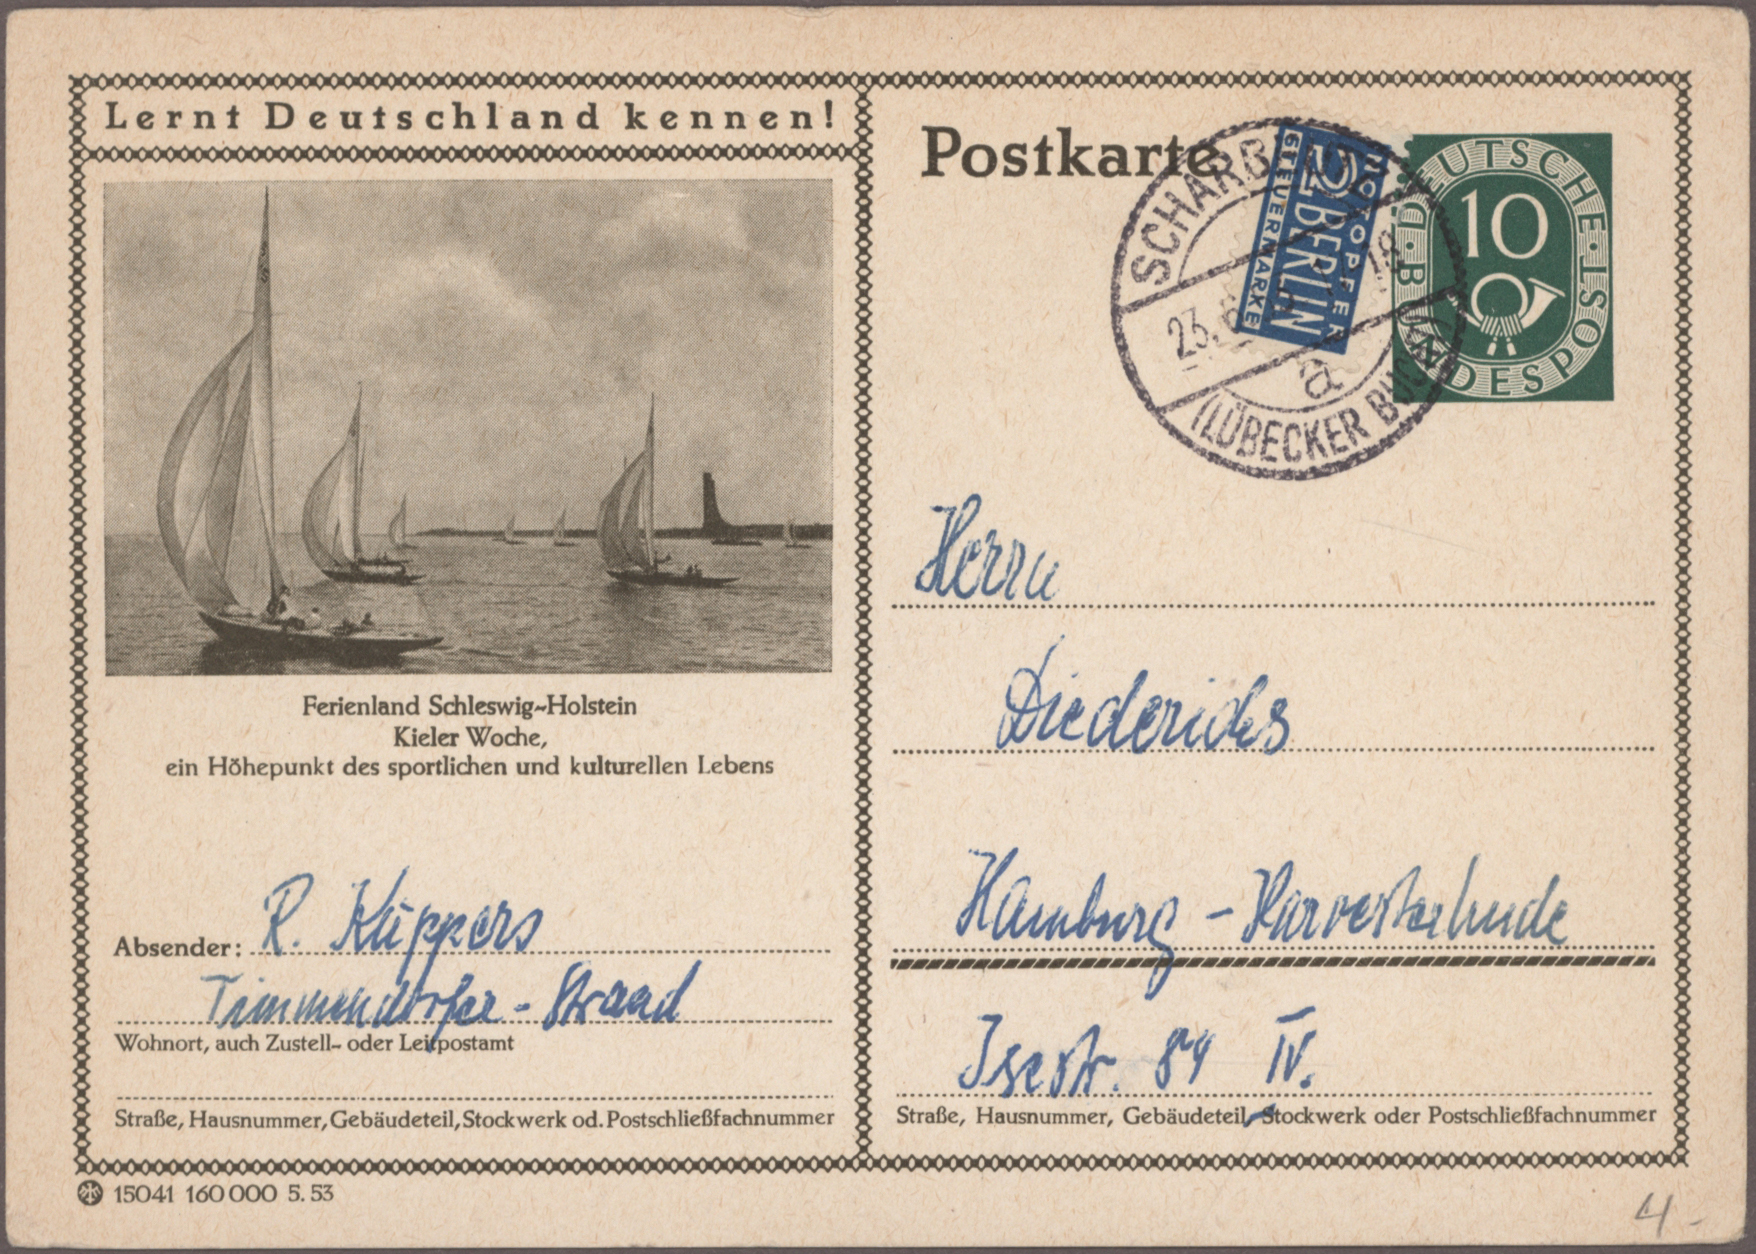 Lernt Deutschland kennen!
Ferienland Schleswig-Holstein
Kieler Woche,
ein Höhepunkt des sportlichen und kulturellen Lebens
Absender: R. Küppers
Timmendorfer-Strand
Wohnort, auch Zustell- oder Leitpostamt
Straße, Hausnummer, Gebäudeteil, Stockwerk od. Postschließfachnummer
15041 160 000 5. 53
Postkarte
NOTOPFER
2 BERLIN
STEUERMARKE
DEUTSCHE BUNDESPOST
10
23.
18
a
(LÜBECKER
Herrn
Diederichs
Hamburg - Harvestehude
Isestr. 84 IV.
Straße, Hausnummer, Gebäudeteil, Stockwerk oder Postschließfachnummer
4 -